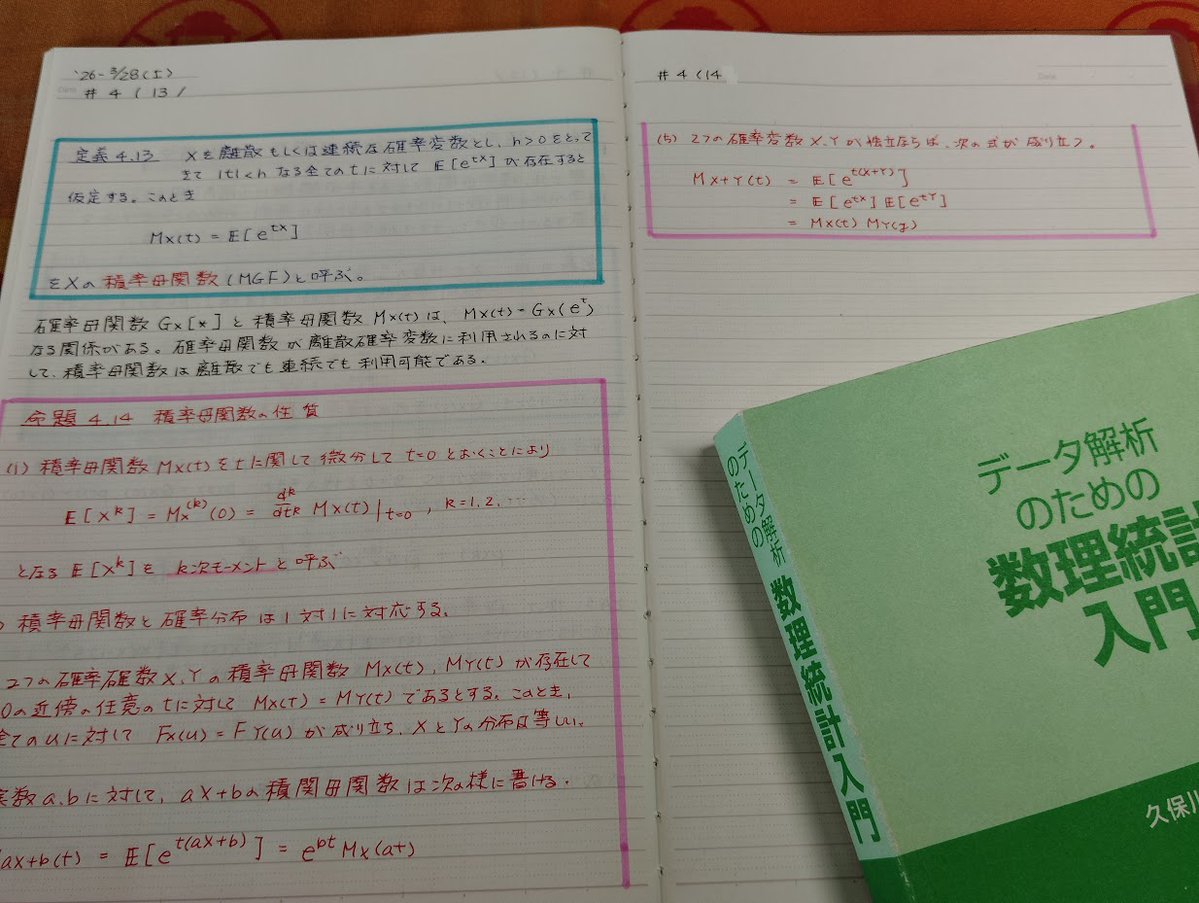 '26-3/28(土)
Date # 4 ( 13 /
定義4.13 Xを離散もしくは連続な確率変数とし、h>0をとって
きて |t|<h なる全てのtに対して E[e^{tX}]が存在すると
仮定する。このとき
Mx(t) = E[e^{tX}]
をXの積率母関数(MGF)と呼ぶ。
確率母関数Gx[*]と積率母関数Mx(t)は、Mx(t)=Gx(e^t)
なる関係がある。確率母関数が離散確率変数に利用されるのに対
して、積率母関数は離散でも連続でも利用可能である.
命題4.14 積率母関数の性質
(1) 積率母関数Mx(t)をtに関して微分してt=0とおくことにより
E[X^k] = Mx^{(k)}(0) = d^k/dt^k Mx(t)|_{t=0}, k=1,2,...
となる E[X^k]を k次モーメントと呼ぶ
) 積率母関数と確率分布は1対1に対応する.
2つの確率確数X,Yの積率母関数Mx(t),MY(t)が存在して
0の近傍の任意のtに対してMx(t)=MY(t)であるとする.このとき,
全てのuに対してFx(u)=FY(u)が成り立ち,XとYの分布は等しい.
実数a,bに対して,aX+bの積関母関数は次の様に書ける.
ax+b(t) = E[e^{t(aX+b)}] = e^{bt}Mx(at)
# 4 (14
Date
(ち) 2つの確率変数X,Yが独立ならば,次の式が成り立つ。
Mx+Y(t) = E[e^{t(X+Y)}]
= E[e^{tX}]E[e^{tY}]
= Mx(t) MY(y)
データ解析
のための
数理統計入門
データ解析
のための
数理統計
入門
久保川